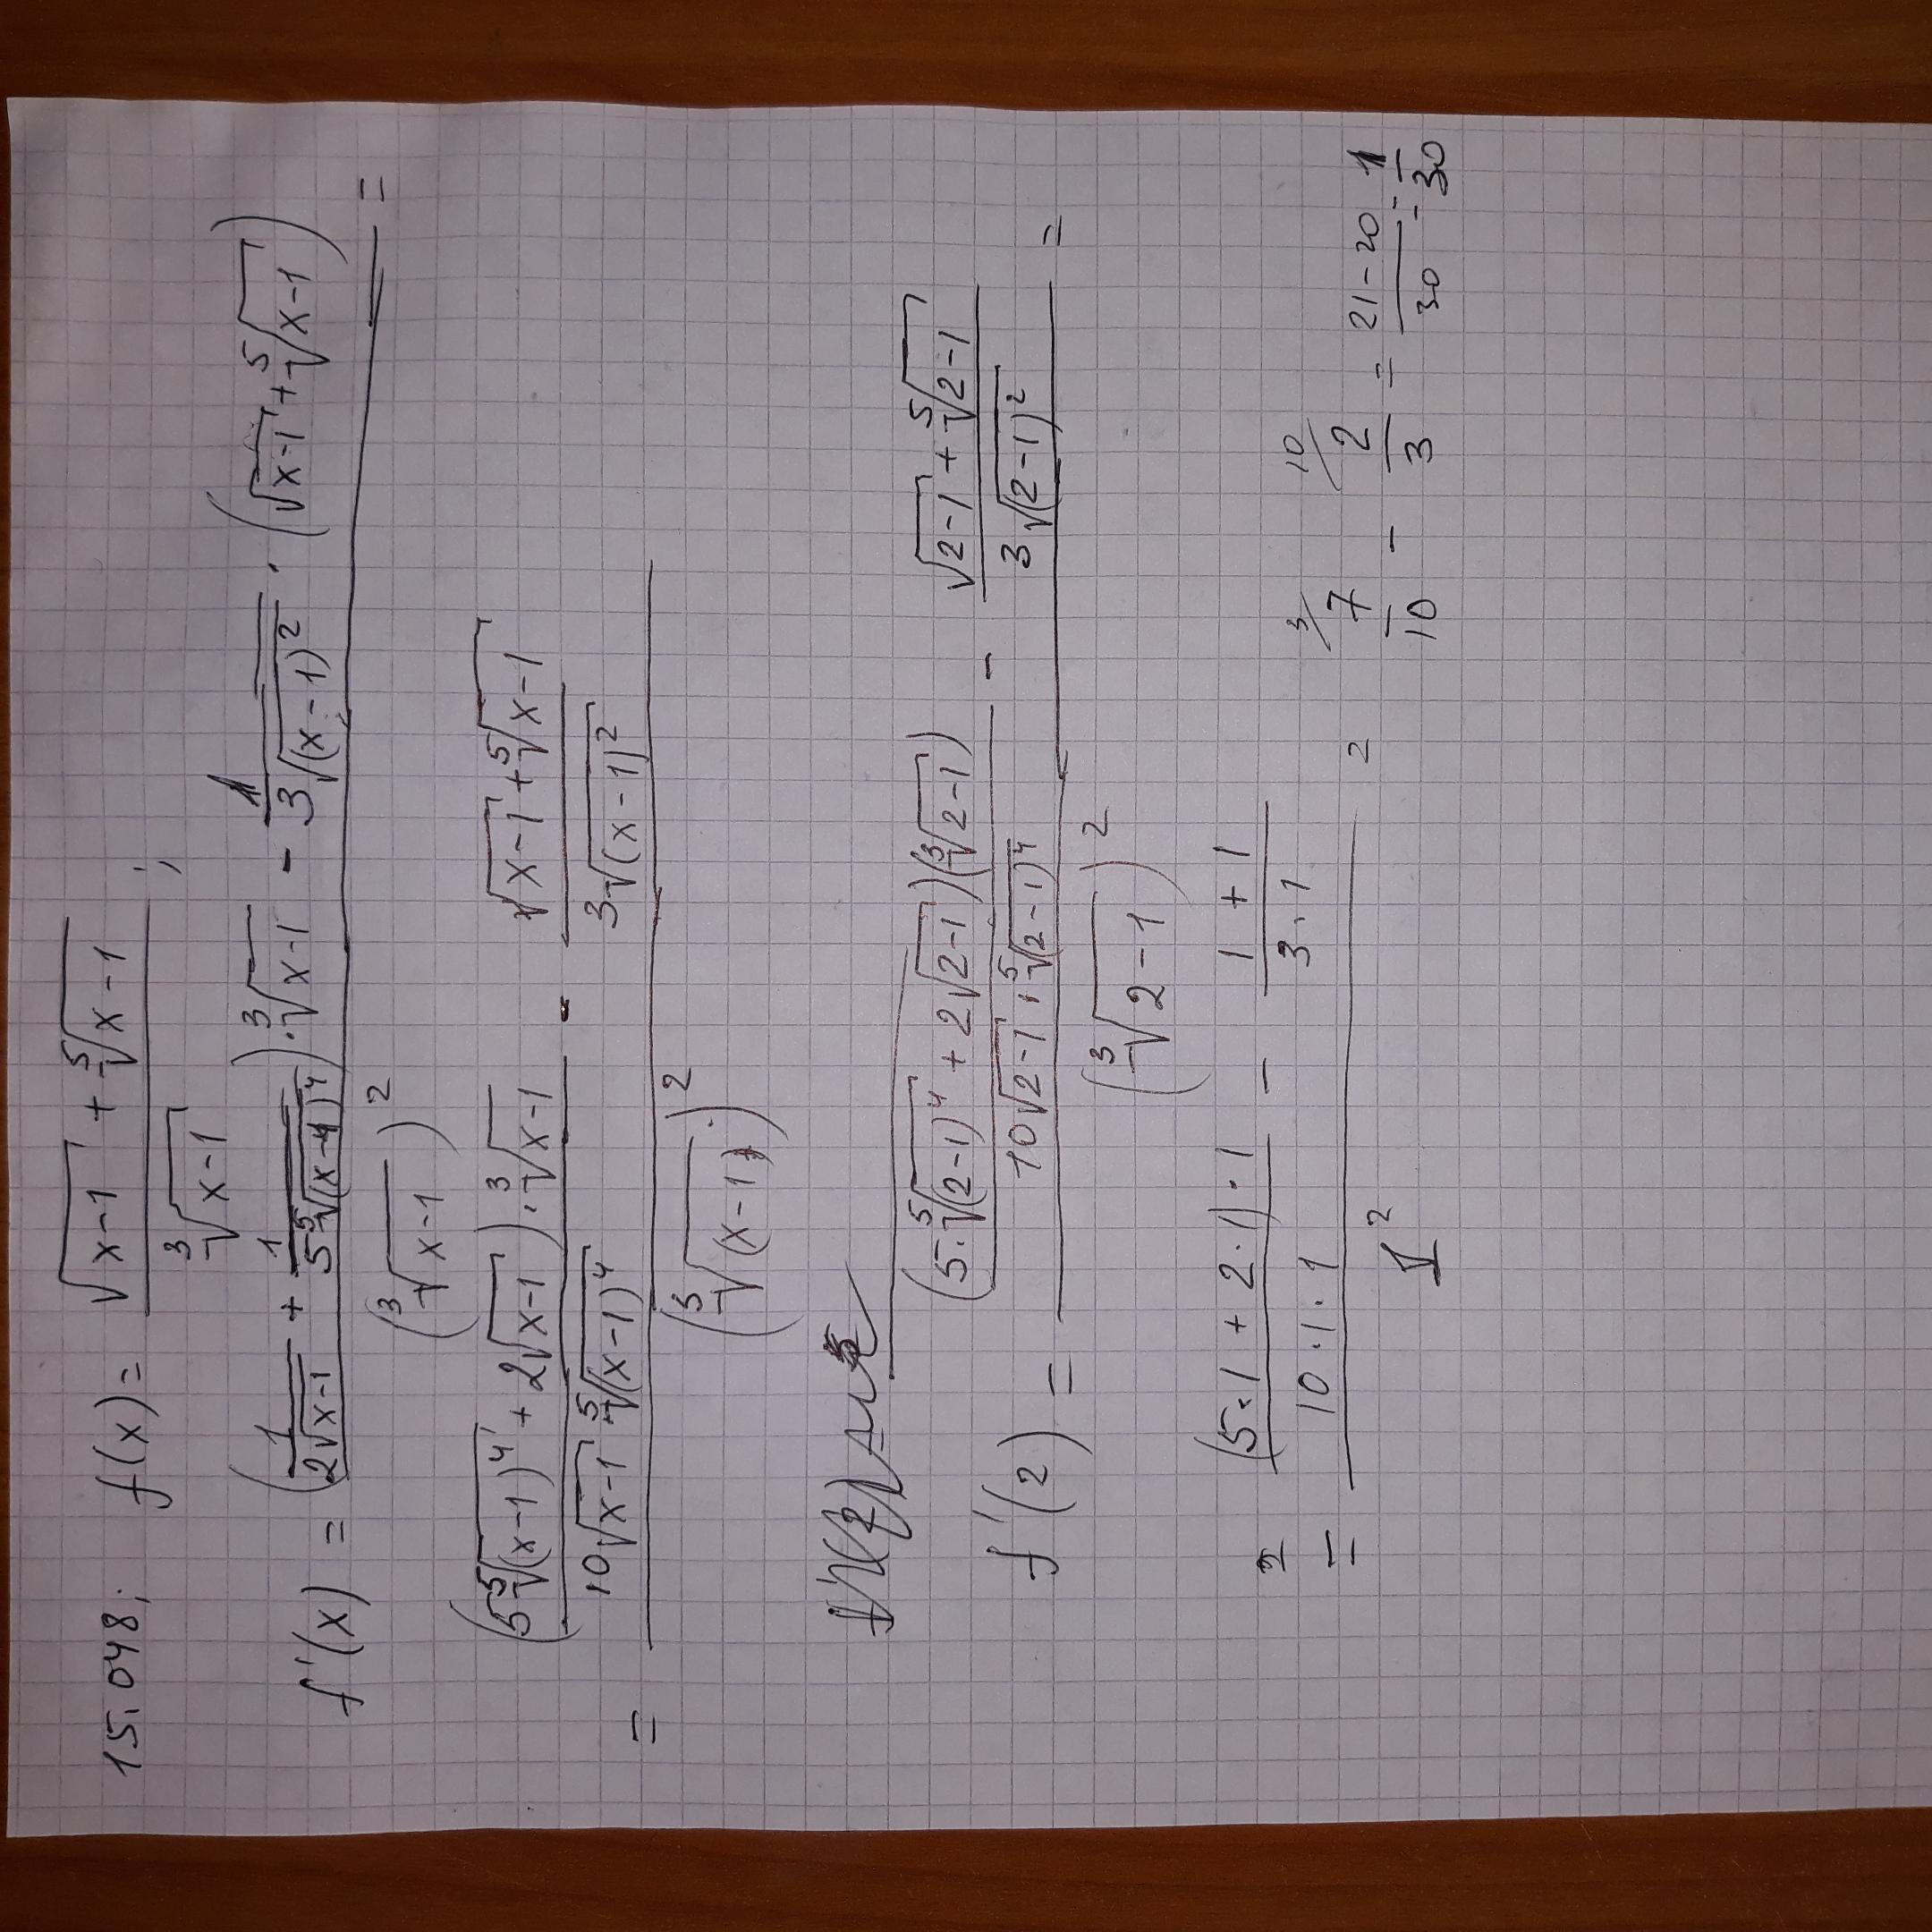 15.048; f(x) = (√(x-1) + ⁵√(x-1)) / ³√(x-1) ;
f'(x) = ((1/(2√(x-1)) + 1/(5 ⁵√(x-1)⁴)) · ³√(x-1) - 1/(3√(x-1)²) · (√(x-1) + ⁵√(x-1))) / (³√(x-1))² =
= ((5 ⁵√(x-1)⁴ + 2√(x-1)) · ³√(x-1) / (10√(x-1) · ⁵√(x-1)⁴) - (√(x-1) + ⁵√(x-1)) / (3√(x-1)²)) / (³√(x-1))²
f'(2) = ((5 · ⁵√(2-1)⁴ + 2√(2-1))(³√(2-1)) / (10√(2-1) · ⁵√(2-1)⁴) - (√(2-1) + ⁵√(2-1)) / (3√(2-1)²)) / (³√(2-1))² =
= ((5·1 + 2·1)·1 / (10·1·1) - (1+1) / (3·1)) / 1² = ³⁄ 7/10 - ¹⁰⁄ 2/3 = (21-20)/30 = 1/30